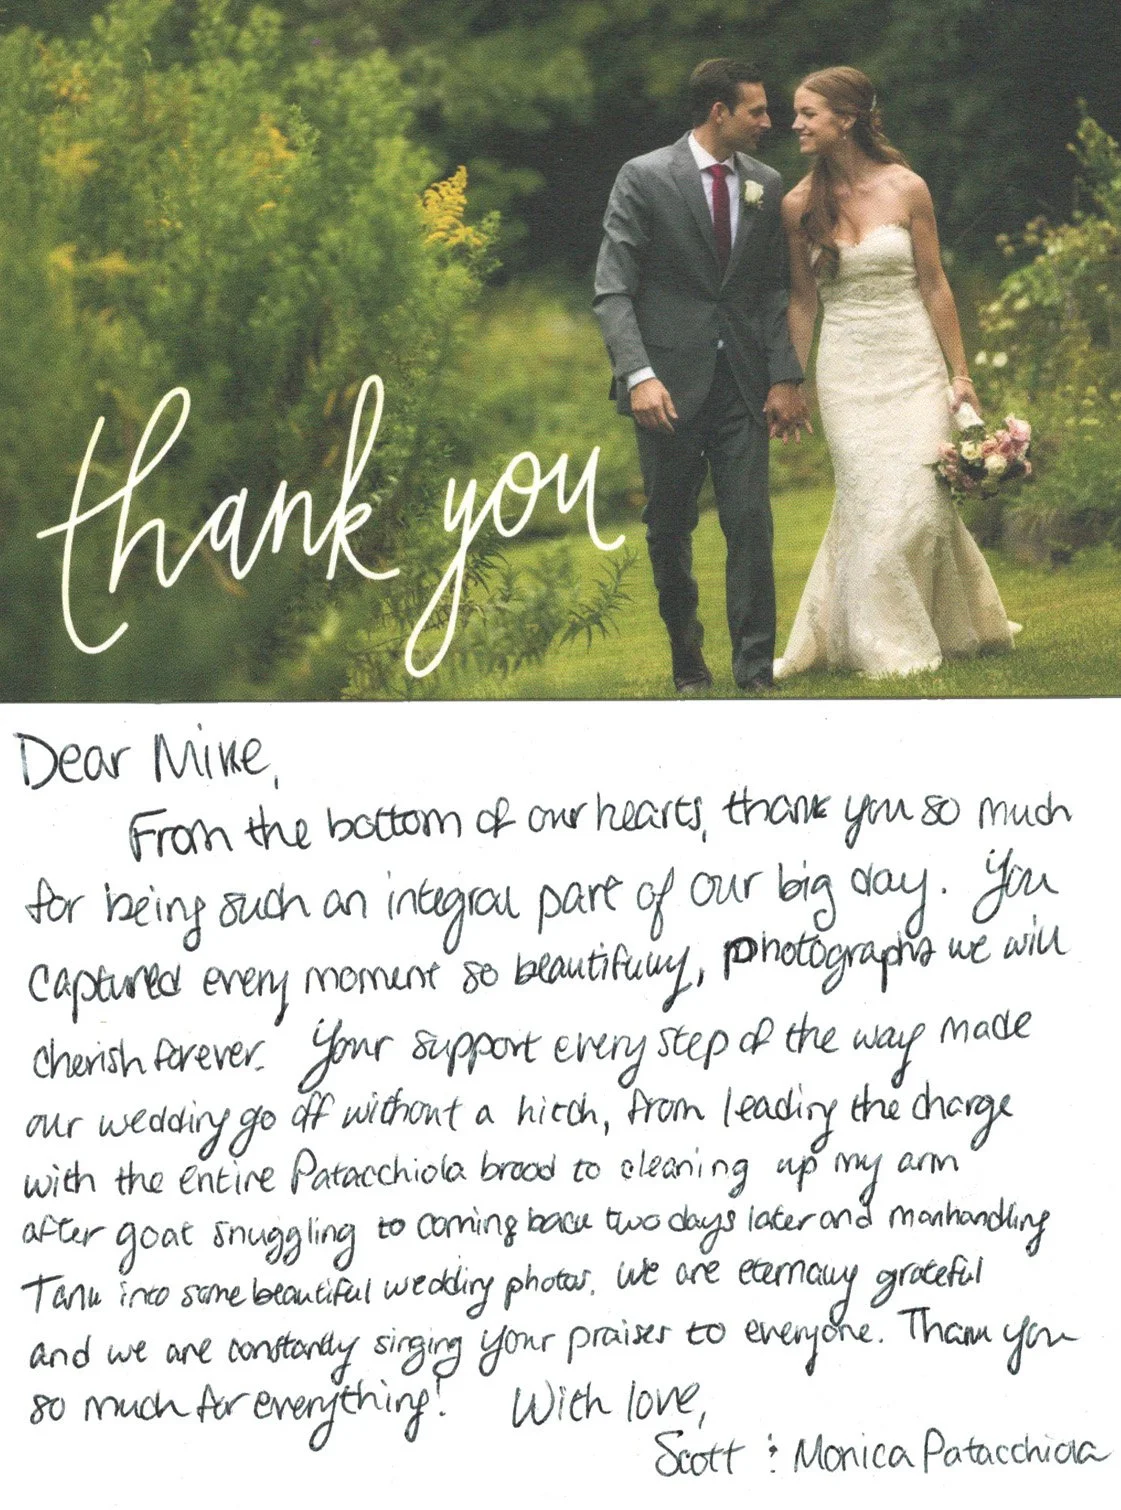 thank you
Dear Mike,
From the bottom of our hearts, thank you so much
for being such an integral part of our big day. You
captured every moment so beautifully, photographs we will
cherish forever. Your support every step of the way made
our wedding go off without a hitch, from leading the charge
with the entire Patacchiola brood to cleaning up my arm
after goat snuggling to coming back two days later and manhandling
Tank into some beautiful wedding photos. We are eternally grateful
and we are constantly singing your praises to everyone. Thank you
so much for everything! With love,
Scott & Monica Patacchiola